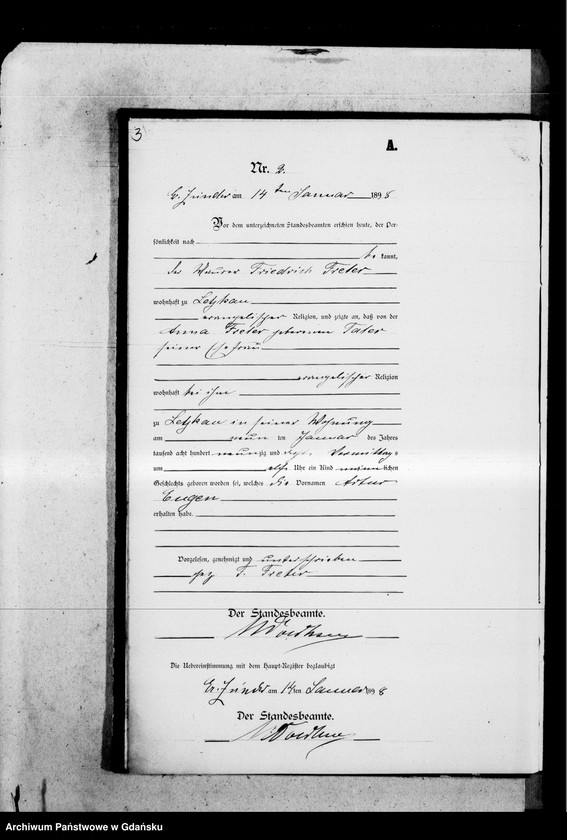 3
A.
Nr. 2.
Gr. Zünder am 14ten Januar 1898
Vor dem unterzeichneten Standesbeamten erschien heute, der Per-
sönlichkeit nach
be kannt,
der Maurer Friedrich Freter
wohnhaft zu Letzkau
evangelischer Religion, und zeigte an, daß von der
Anna Freter geborenen
seiner Ehefrau
evangelischer Religion
wohnhaft bei ihm
zu Letzkau in seiner Wohnung
am neun ten Januar des Jahres
tausend acht hundert neunzig und acht Vormittags
um Uhr ein Kind männlichen
Geschlechts geboren worden sei, welches die Vornamen Artur
Eugen
erhalten habe.
Vorgelesen, genehmigt und unterschrieben
gez F. Freter
Der Standesbeamte.
Die Uebereinstimmung mit dem Haupt-Register beglaubigt
Gr. Zünder am 14ten Januar 1898
Der Standesbeamte.
Archiwum Państwowe w Gdańsku